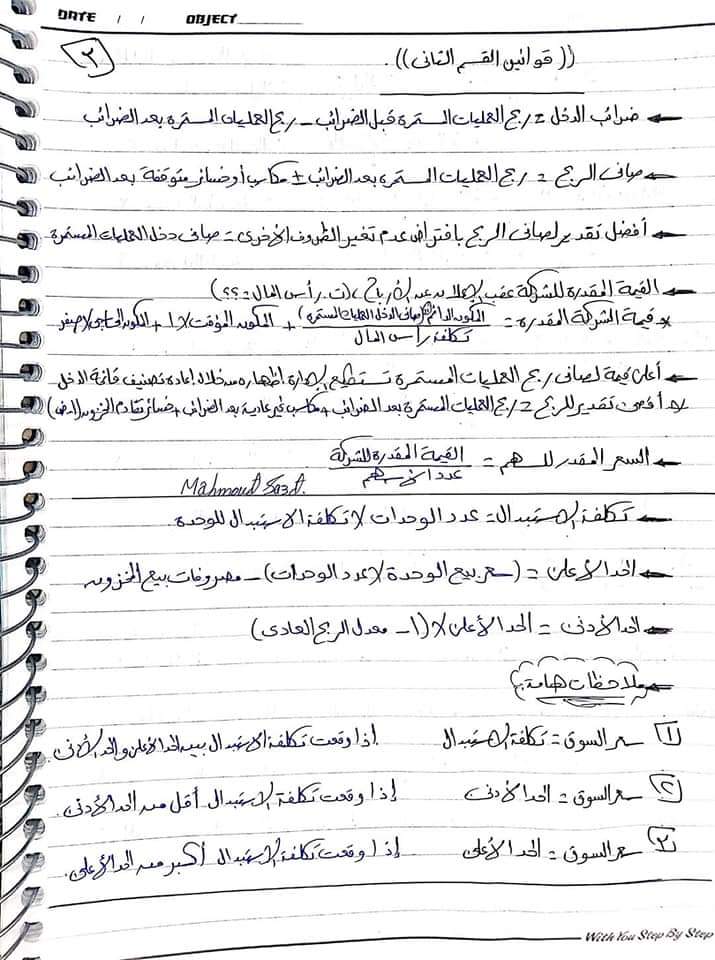 DATE / / OBJECT
٢
((قوانين القسم الثانى)).
← ضرائب الدخل = ربح العمليات المستمرة قبل الضرائب - ربح العمليات المستمرة بعد الضرائب
← صافى الربح = ربح العمليات المستمرة بعد الضرائب ± مكاسب أو خسائر متوقفة بعد الضرائب
← أفضل تقدير لصافى الربح بافتراض عدم تغير الظروف الأخرى = صافى دخل العمليات المستمرة
← القيمة المقدرة للشركة عقب الإعلان عن الأرباح، (ت. رأس المال = ؟؟)
* قيمة الشركة المقدرة = المكون الدائم (صافى الدخل العمليات المستمرة) / تكلفة رأس المال + المكون المؤقت × ١ + المكون × صفر
← أعلى قيمة لصافى ربح العمليات المستمرة تستطيع الإدارة اظهاره من خلال إعادة تصنيف قائمة الدخل
* أقصى تقدير للربح = ربح العمليات المستمرة بعد الضرائب + مكاسب غير عادية بعد الضرائب + خسائر تقادم المخزون
← السعر المقدر للسهم = القيمة المقدرة للشركة / عدد الأسهم
Mahmoud
← تكلفة الاستبدال = عدد الوحدات × تكلفة الاستبدال للوحدة.
← الحد الأعلى = (سعر بيع الوحدة × عدد الوحدات) - مصروفات بيع المخزون
← الحد الأدنى = الحد الأعلى × (١ - معدل الربح العادى)
← ملاحظات هامة:
١) سعر السوق = تكلفة الاستبدال إذا وقعت تكلفة الاستبدال بين الحد الأعلى والحد الأدنى.
٢) سعر السوق = الحد الأدنى إذا وقعت تكلفة الاستبدال أقل من الحد الأدنى.
٣) سعر السوق = الحد الأعلى إذا وقعت تكلفة الاستبدال أكبر من الحد الأعلى.
With You Step By Step